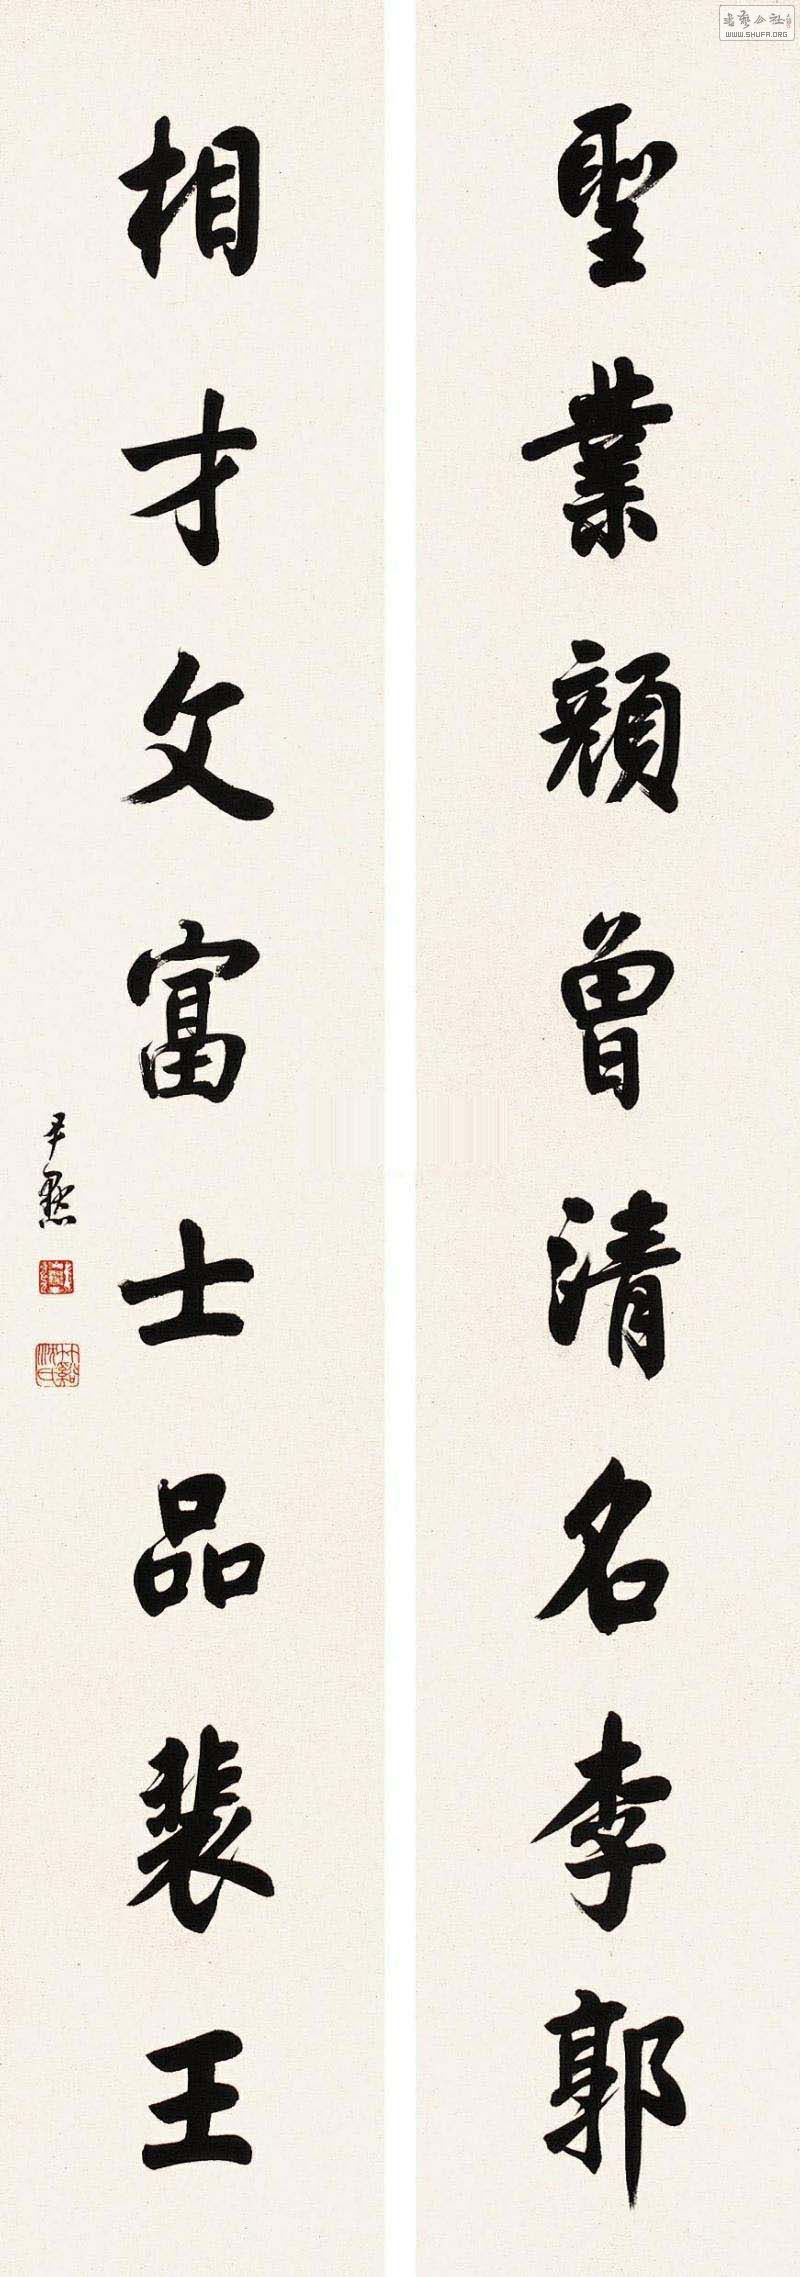 聖業顔曾清名李郭
相才文富士品裴王
尹默
書藝公社
WWW.SHUFA.ORG